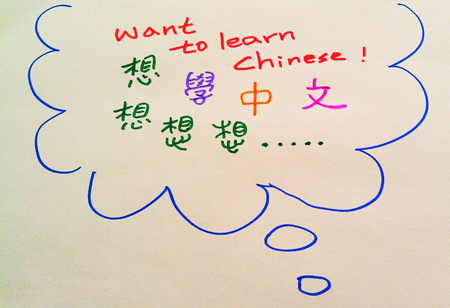 Want
to learn
Chinese !
想學中文
想想想.....